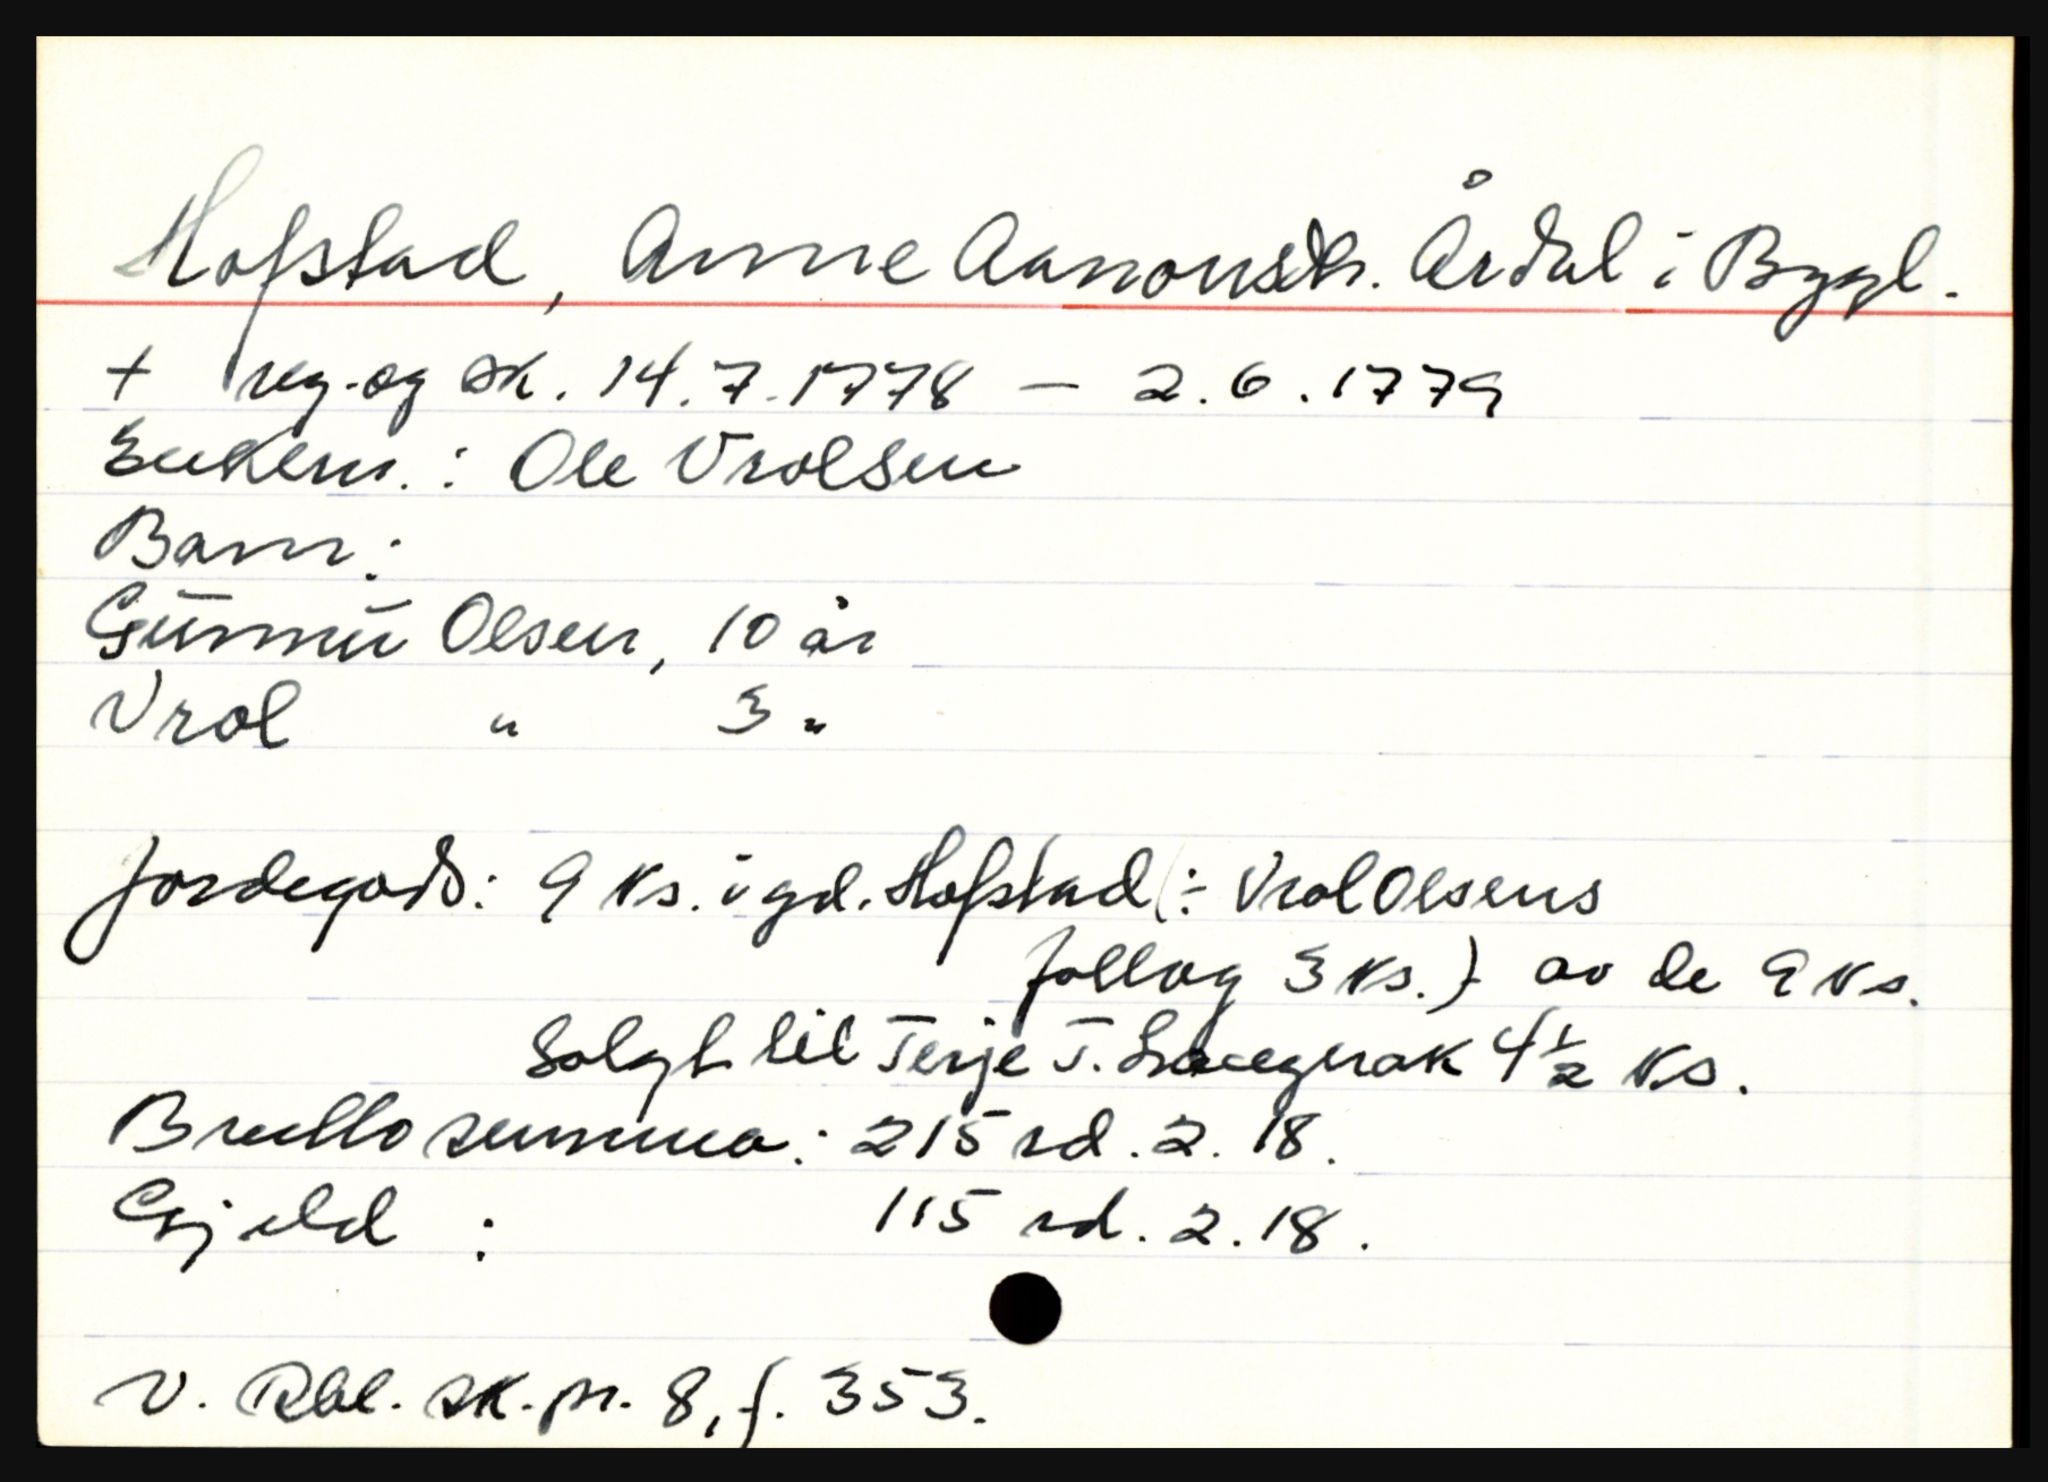 Hofstad, Anne Aanonsdtr. Årdal i Bygl.
+ reg. og sk. 14.7.1778 – 2.6.1779
Enkem.: Ole Vrolsen
Barn:
Gunnu Olsen, 10 år
Vrol " 3 "
Jordegods: 9 ks. i gd. Hofstad (: Vrol Olsens
follog 3 ks.) av de 9 ks.
Solgt til Terje T. Langerak 4½ ks.
Brutto summa: 215 rd. 2. 18.
Gjeld : 115 rd. 2. 18.
V. Rbl. sk. pr. 8, f. 353.